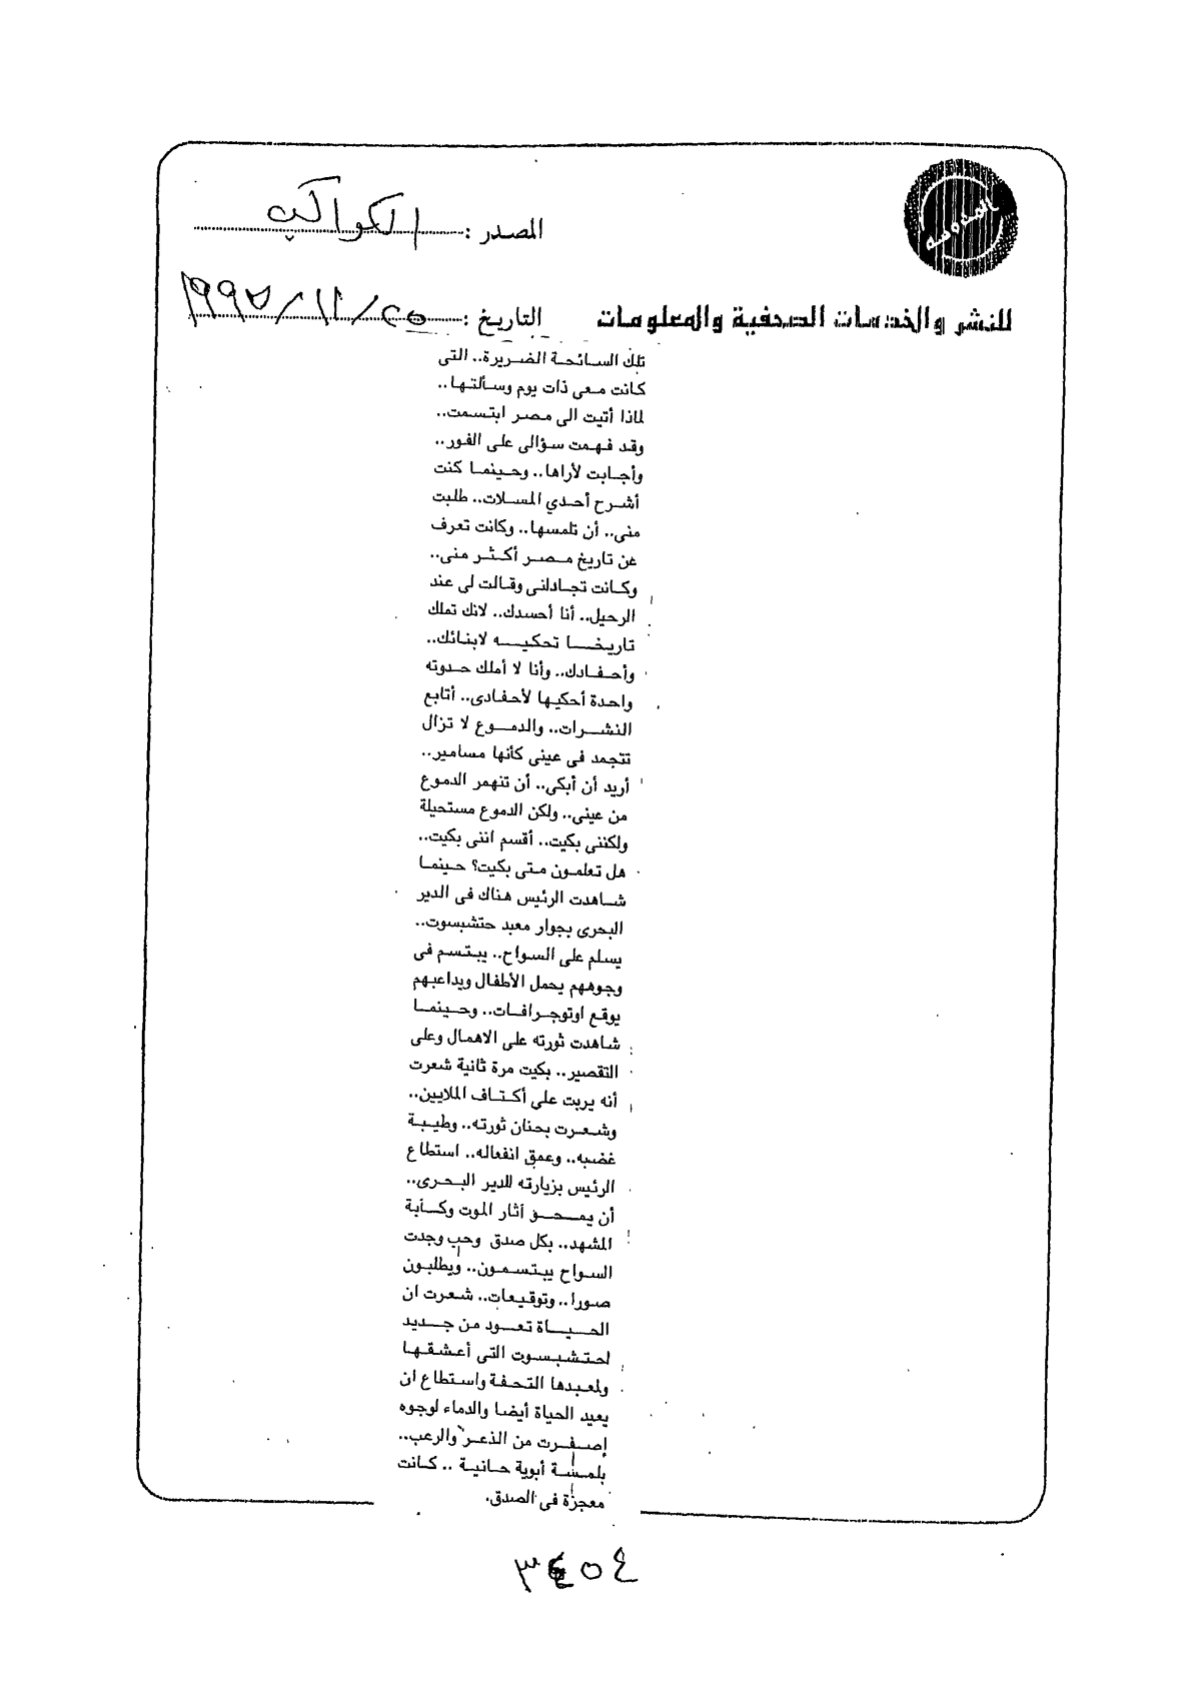 المصدر : الكواكب
للنشر والخدمات الصحفية والمعلومات
التاريخ : ٢٥ / ١١ / ١٩٩٧
تلك السائحة الضريرة.. التى
كانت معى ذات يوم وسألتها..
لماذا أتيت الى مصر ابتسمت..
وقد فهمت سؤالى على الفور..
وأجابت لأراها.. وحينما كنت
أشرح أحدي المسلات.. طلبت
منى.. أن تلمسها.. وكانت تعرف
عن تاريخ مصر أكثر منى..
وكانت تجادلنى وقالت لى عند
الرحيل.. أنا أحسدك.. لانك تملك
تاريخا تحكيه لابنائك..
وأحفادك.. وأنا لا أملك حدوته
واحدة أحكيها لأحفادى.. أتابع
النشرات.. والدموع لا تزال
تتجمد فى عينى كأنها مسامير..
أريد أن أبكى.. أن تنهمر الدموع
من عينى.. ولكن الدموع مستحيلة
ولكننى بكيت.. أقسم اننى بكيت..
هل تعلمون متى بكيت؟ حينما
شاهدت الرئيس هناك فى الدير
البحرى بجوار معبد حتشبسوت..
يسلم على السواح.. يبتسم فى
وجوههم يحمل الأطفال ويداعبهم
يوقع اوتوجرافات.. وحينما
شاهدت ثورته على الاهمال وعلى
التقصير.. بكيت مرة ثانية شعرت
أنه يربت على أكتاف الملايين..
وشعرت بحنان ثورته.. وطيبة
غضبه.. وعمق انفعاله.. استطاع
الرئيس بزيارته للدير البحرى..
أن يمحو أثار الموت وكأبة
المشهد.. بكل صدق وحب وجدت
السواح يبتسمون.. ويطلبون
صورا.. وتوقيعات.. شعرت ان
الحياة تعود من جديد
لحتشبسوت التى أعشقها
ولمعبدها التحفة واستطاع ان
يعيد الحياة أيضا والدماء لوجوه
إصفرت من الذعر والرعب..
بلمسة أبوية حانية .. كانت
معجزة فى الصدق.